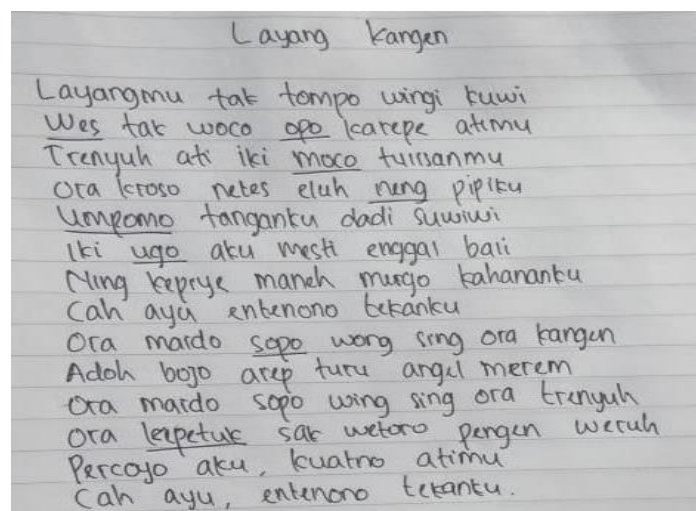 Layang kangen
Layangmu tak tompo wingi kuwi
Wes tak woco opo karepe atimu
Trenyuh ati iki moco tulisanmu
Ora kroso netes eluh neng pipiku
Umpomo tanganku dadi suwiwi
Iki ugo aku mesti enggal bali
Ning kepriye maneh murgo kahananku
Cah ayu entenono tekanku
Ora maido sopo wong sing ora kangen
Adoh bojo arep turu angel merem
Ora maido sopo wing sing ora trenyuh
Ora kepetuk sak wetoro pengen weruh
Percoyo aku, kuatno atimu
Cah ayu, entenono tekanku.